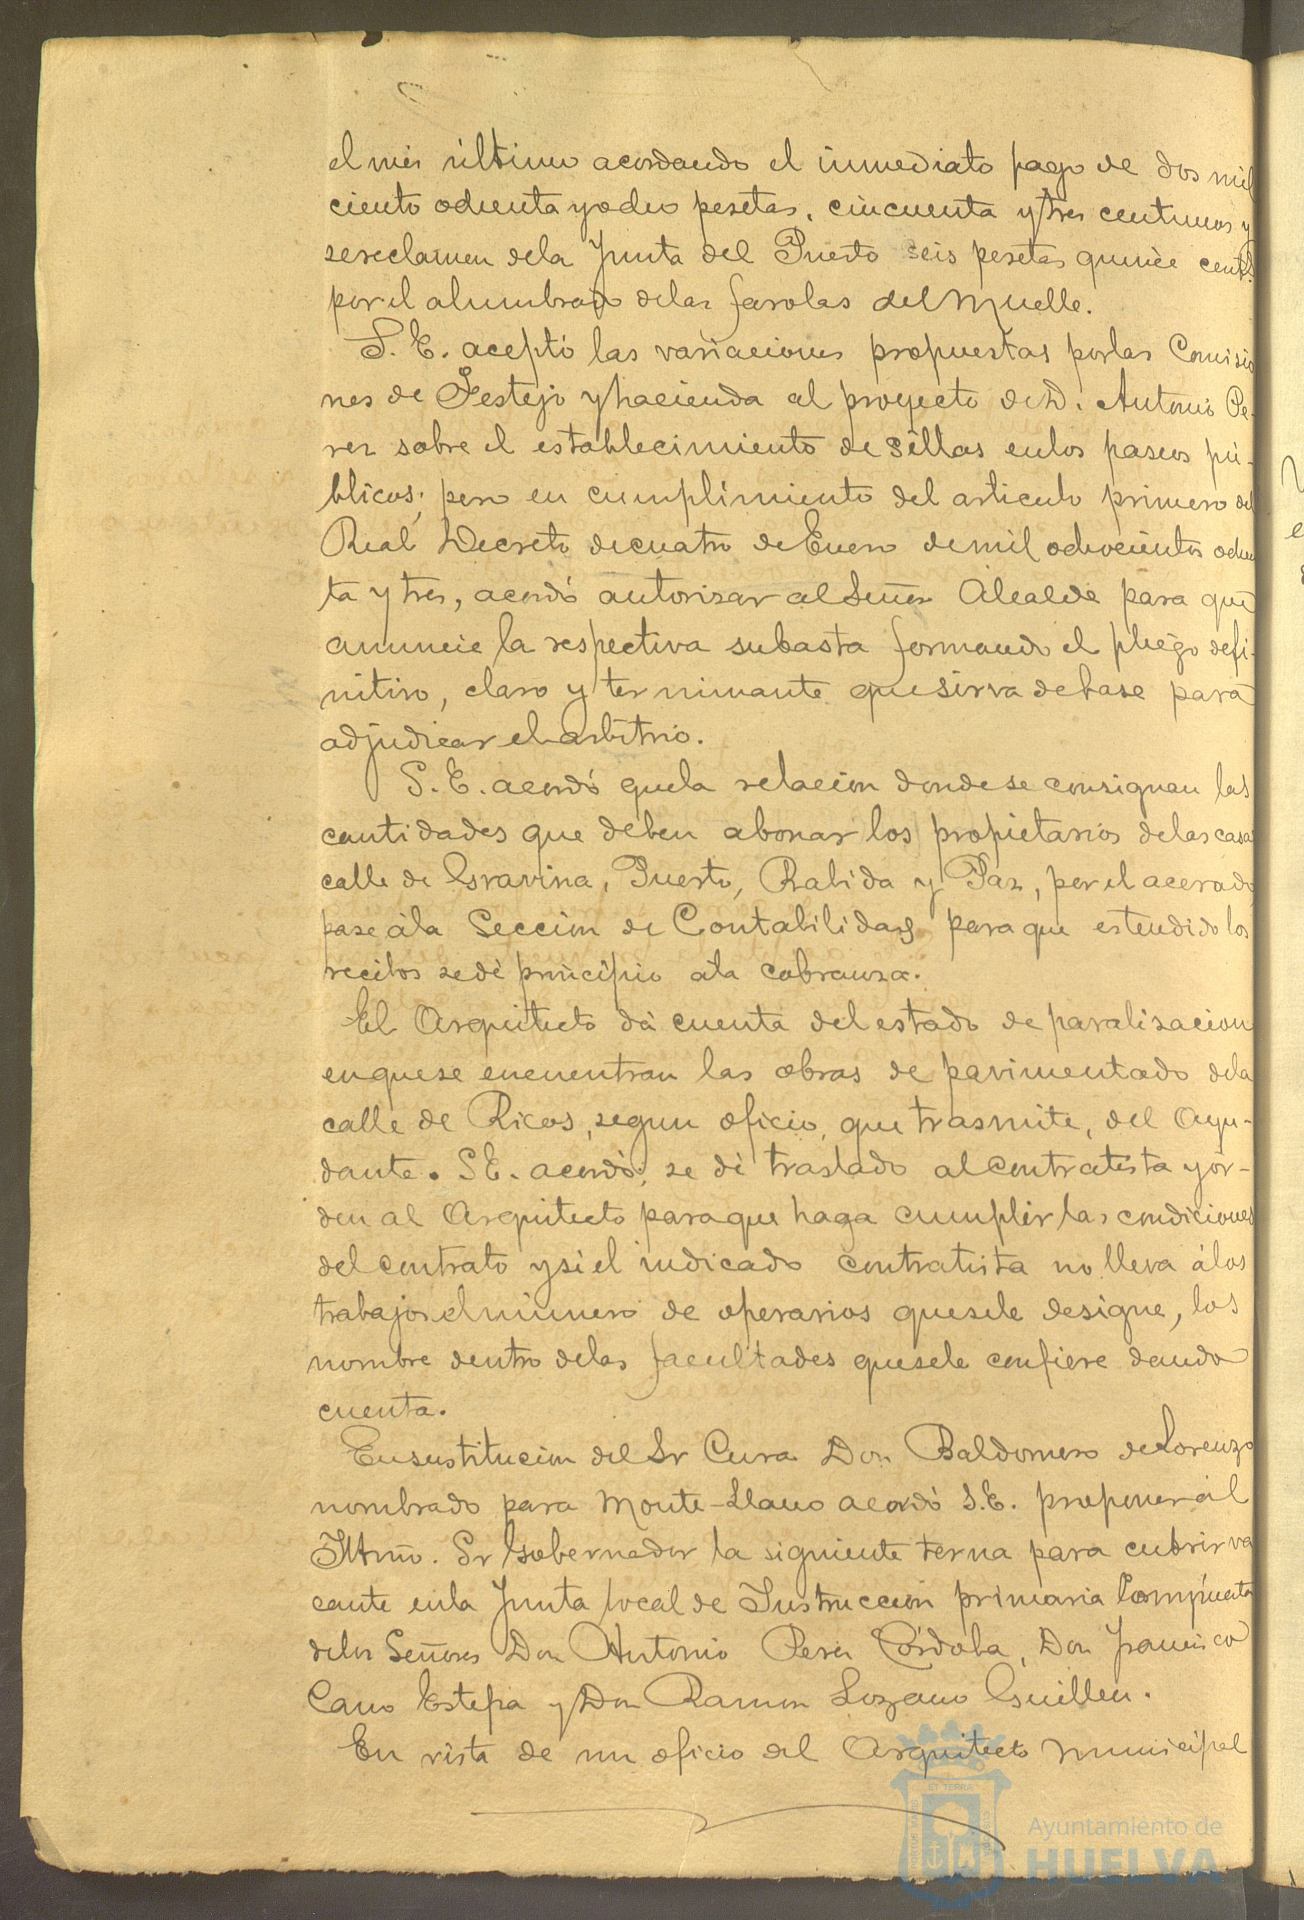 el mes último acordando el inmediato pago de dos mil
ciento ochenta y ocho pesetas, cincuenta y tres centimos y
se reclamen dela Junta del Puerto seis pesetas quince cent.
por el alumbrado delas farolas del Muelle.
S. E. aceptó las variaciones propuestas por las Comisio
nes de Festejo y hacienda al proyecto de D. Antonio Pe-
rez sobre el establecimiento de sillas en los paseos pú-
blicos; pero en cumplimiento del articulo primero del
Real Decreto de cuatro de Enero de mil ochocientos ochen
ta y tres, acordó autorizar al Señor Alcalde para que
anuncie la respectiva subasta formando el pliego defi-
nitivo, claro y terminante que sirva de base para
adjudicar el arbitrio.
S. E. acordó que la relacion donde se consignan las
cantidades que deben abonar los propietarios de las casas
calle de Gravina, Puerto, Rabida y Paz, por el acerado,
pase á la Seccion de Contabilidad para que estendido los
recibos se dé principio a la cobranza.
El Arquitecto dá cuenta del estado de paralizacion
en que se encuentran las obras de pavimentado de la
calle de Ricos, segun oficio, que trasmite, del Ayu-
dante. S.E. acordó; se dé traslado al contratista y ór-
den al Arquitecto para que haga cumplir las condiciones
del contrato y si el indicado contratista no lleva á los
trabajos el número de operarios que se le designe, los
nombre dentro de las facultades que se le confiere dando
cuenta.
En sustitucion del Sr Cura Don Baldomero de Lorenzo
nombrado para Monte-Llano acordó S.E. proponer al
Iltmo. Sr Gobernador la siguiente terna para cubrir va
cante en la Junta local de Instruccion primaria Compuesta
de los Señores Don Antonio Perez Córdoba, Don Francisco
Cano Estepa y Don Ramon Lozano Guillen.
En vista de un oficio del Arquitecto municipal
Ayuntamiento de
HUELVA